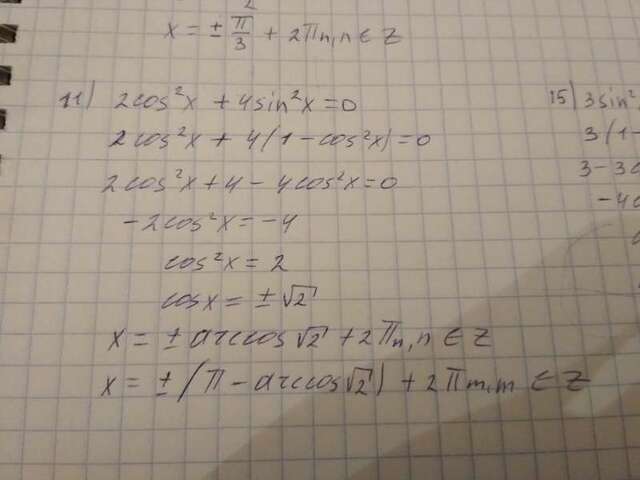 2
x = ± π/3 + 2πn, n ∈ Z
11) 2cos²x + 4sin²x = 0
2cos²x + 4(1 - cos²x) = 0
2cos²x + 4 - 4cos²x = 0
-2cos²x = -4
cos²x = 2
cosx = ± √2
x = ± arccos √2 + 2πn, n ∈ Z
x = ± (π - arccos √2) + 2πm, m ∈ Z
15) 3sin²
3(1-
3-3c
-4c